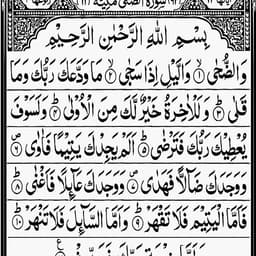 سورة الضحى مكية
بِسْمِ اللهِ الرَّحْمٰنِ الرَّحِيْمِ
وَالضُّحٰى ۙ﴿۱﴾ وَالَّيْلِ اِذَا سَجٰى ۙ﴿۲﴾ مَا وَدَّعَكَ رَبُّكَ وَمَا
قَلٰى ؕ﴿۳﴾ وَلَلْاٰخِرَةُ خَيْرٌ لَّكَ مِنَ الْاُوْلٰى ؕ﴿۴﴾ وَلَسَوْفَ
يُعْطِيْكَ رَبُّكَ فَتَرْضٰى ؕ﴿۵﴾ اَلَمْ يَجِدْكَ يَتِيْمًا فَاٰوٰى ۪﴿۶﴾
وَوَجَدَكَ ضَآلًّا فَهَدٰى ۪﴿۷﴾ وَوَجَدَكَ عَآئِلًا فَاَغْنٰى ؕ﴿۸﴾
فَاَمَّا الْيَتِيْمَ فَلَا تَقْهَرْ ؕ﴿۹﴾ وَاَمَّا السَّآئِلَ فَلَا تَنْهَرْ ؕ﴿۱۰﴾